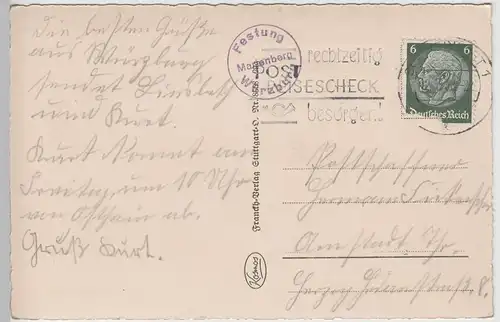 Die besten Grüße
aus Würzburg
sendet
und Kurt.
Kurt kommt am
Freitag um 10 Uhr
an ab.
Gruß Kurt.
Festung
Marienberg
Würzburg
rechtzeitig
POST
REISESCHECK
besorgen!
6 6
Deutsches Reich
Franckh-Verlag Stuttgart-O. Nr.
Kosmos
Postschaffner
Hermann
Arnstadt Thr.
8.